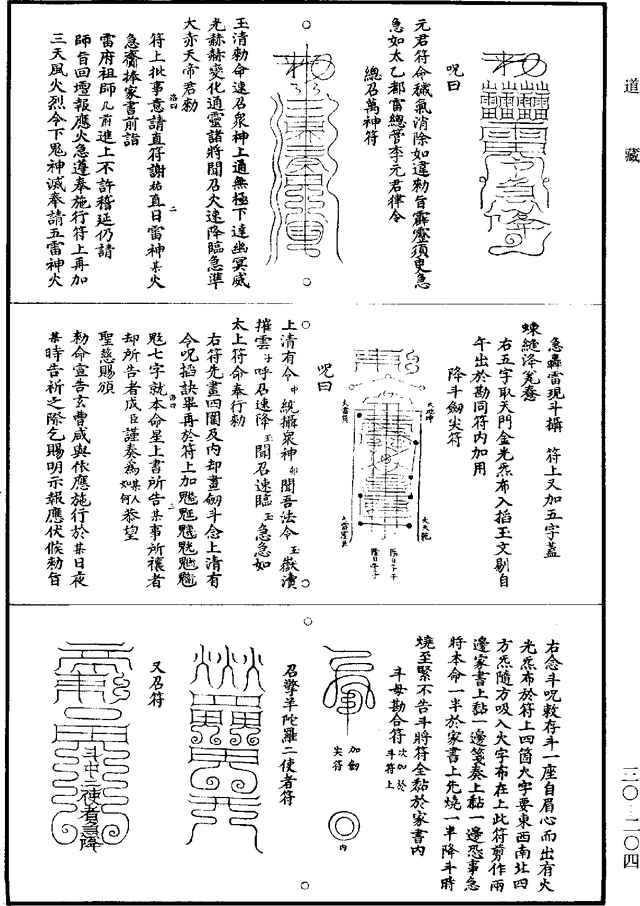 道藏
呪曰
元君符命穢氣消除如違勅旨霹靂須臾急
急如太乙都雷總管李元君律令
總召萬神符
玉清勅命速召衆神上通無極下達幽冥威
光赫赫變化通靈諸將聞召火速降臨急準
大赤天帝君勅
符上批事意請直符謝祐直日雷神某火
急齎捧家書前詣
雷府祖師几前進上不許稽延仍請
師旨回壇報應火急遵奉施行符上再加
三天風火烈令下鬼神滅奉請五雷神火
急轟雷現斗攝 符上又加五字蓋
右五字取天門金光炁布入掐玉文剔自
午出於勘同符内加用
降斗劒尖符
呪曰
上清有令中統攝衆神卯聞吾法令玉嶽瀆
摧雲子呼召速降玉聞召速臨玉急急如
太上符命奉行勅
右符先畫四圍及内却畫劒斗念上清有
令呪掐訣畢再於符上加
魁七字就本命星上書所告某事所禳者
却所告者成臣謹奏為某人如何恭望
聖慈賜頒
勅命宣告玄曹咸與依應施行於某日夜
某時告祈之際乞賜明示報應伏候勅旨
右念斗呪敕存斗一座自眉心而出有火
光炁布於符上四箇大字要東西南北四
方炁隨方吸入大字布在上此符剪作兩
邊家書上黏一邊箋奏上黏一邊恐事急
將本命一半於家書上先燒一半降斗時
燒至緊不告斗將符全黏於家書内
斗母勘合符次加於斗符上
加劒尖符
内
召擎羊陀羅二使者符
又召符
斗中二使者急降
三〇—二〇四